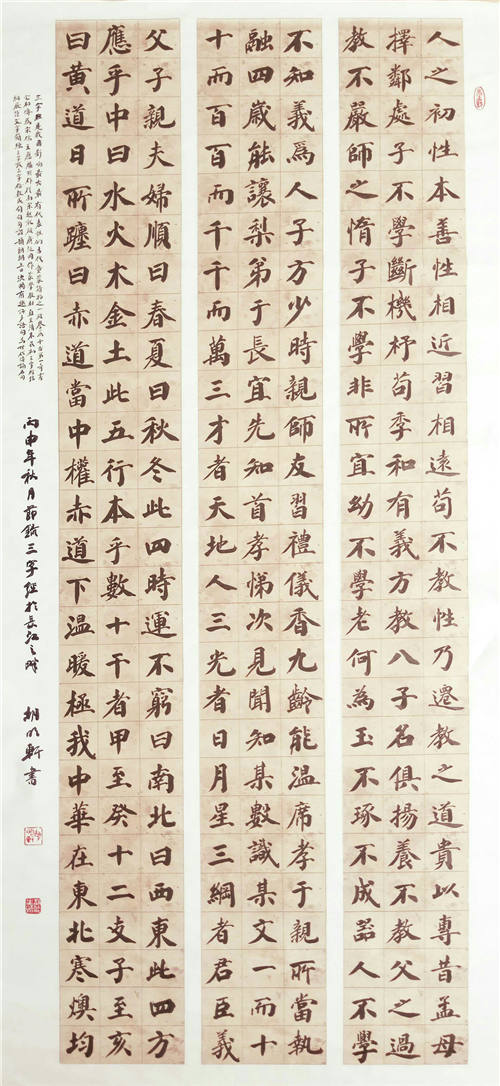 人之初性本善性相近習相遠苟不教性乃遷教之道貴以專昔孟母
擇鄰處子不學斷機杼荀季和有義方教八子名俱揚養不教父之過
教不嚴師之惰子不學非所宜幼不學老何為玉不琢不成器人不學
不知義爲人子方少時親師友習禮儀香九齡能溫席孝于親所當執
融四歲能讓梨弟于長宜先知首孝悌次見聞知某數識某文一而十
十而百百而千千而萬三才者天地人三光者日月星三綱者君臣義
父子親夫婦順曰春夏曰秋冬此四時運不窮曰南北曰西東此四方
應乎中曰水火木金土此五行本乎數十干者甲至癸十二支子至亥
曰黃道日所躔曰赤道當中權赤道下溫暖極我中華在東北寒燠均
三字經是我國
丙申年秋月節錄三字經於長江之 胡明軒書